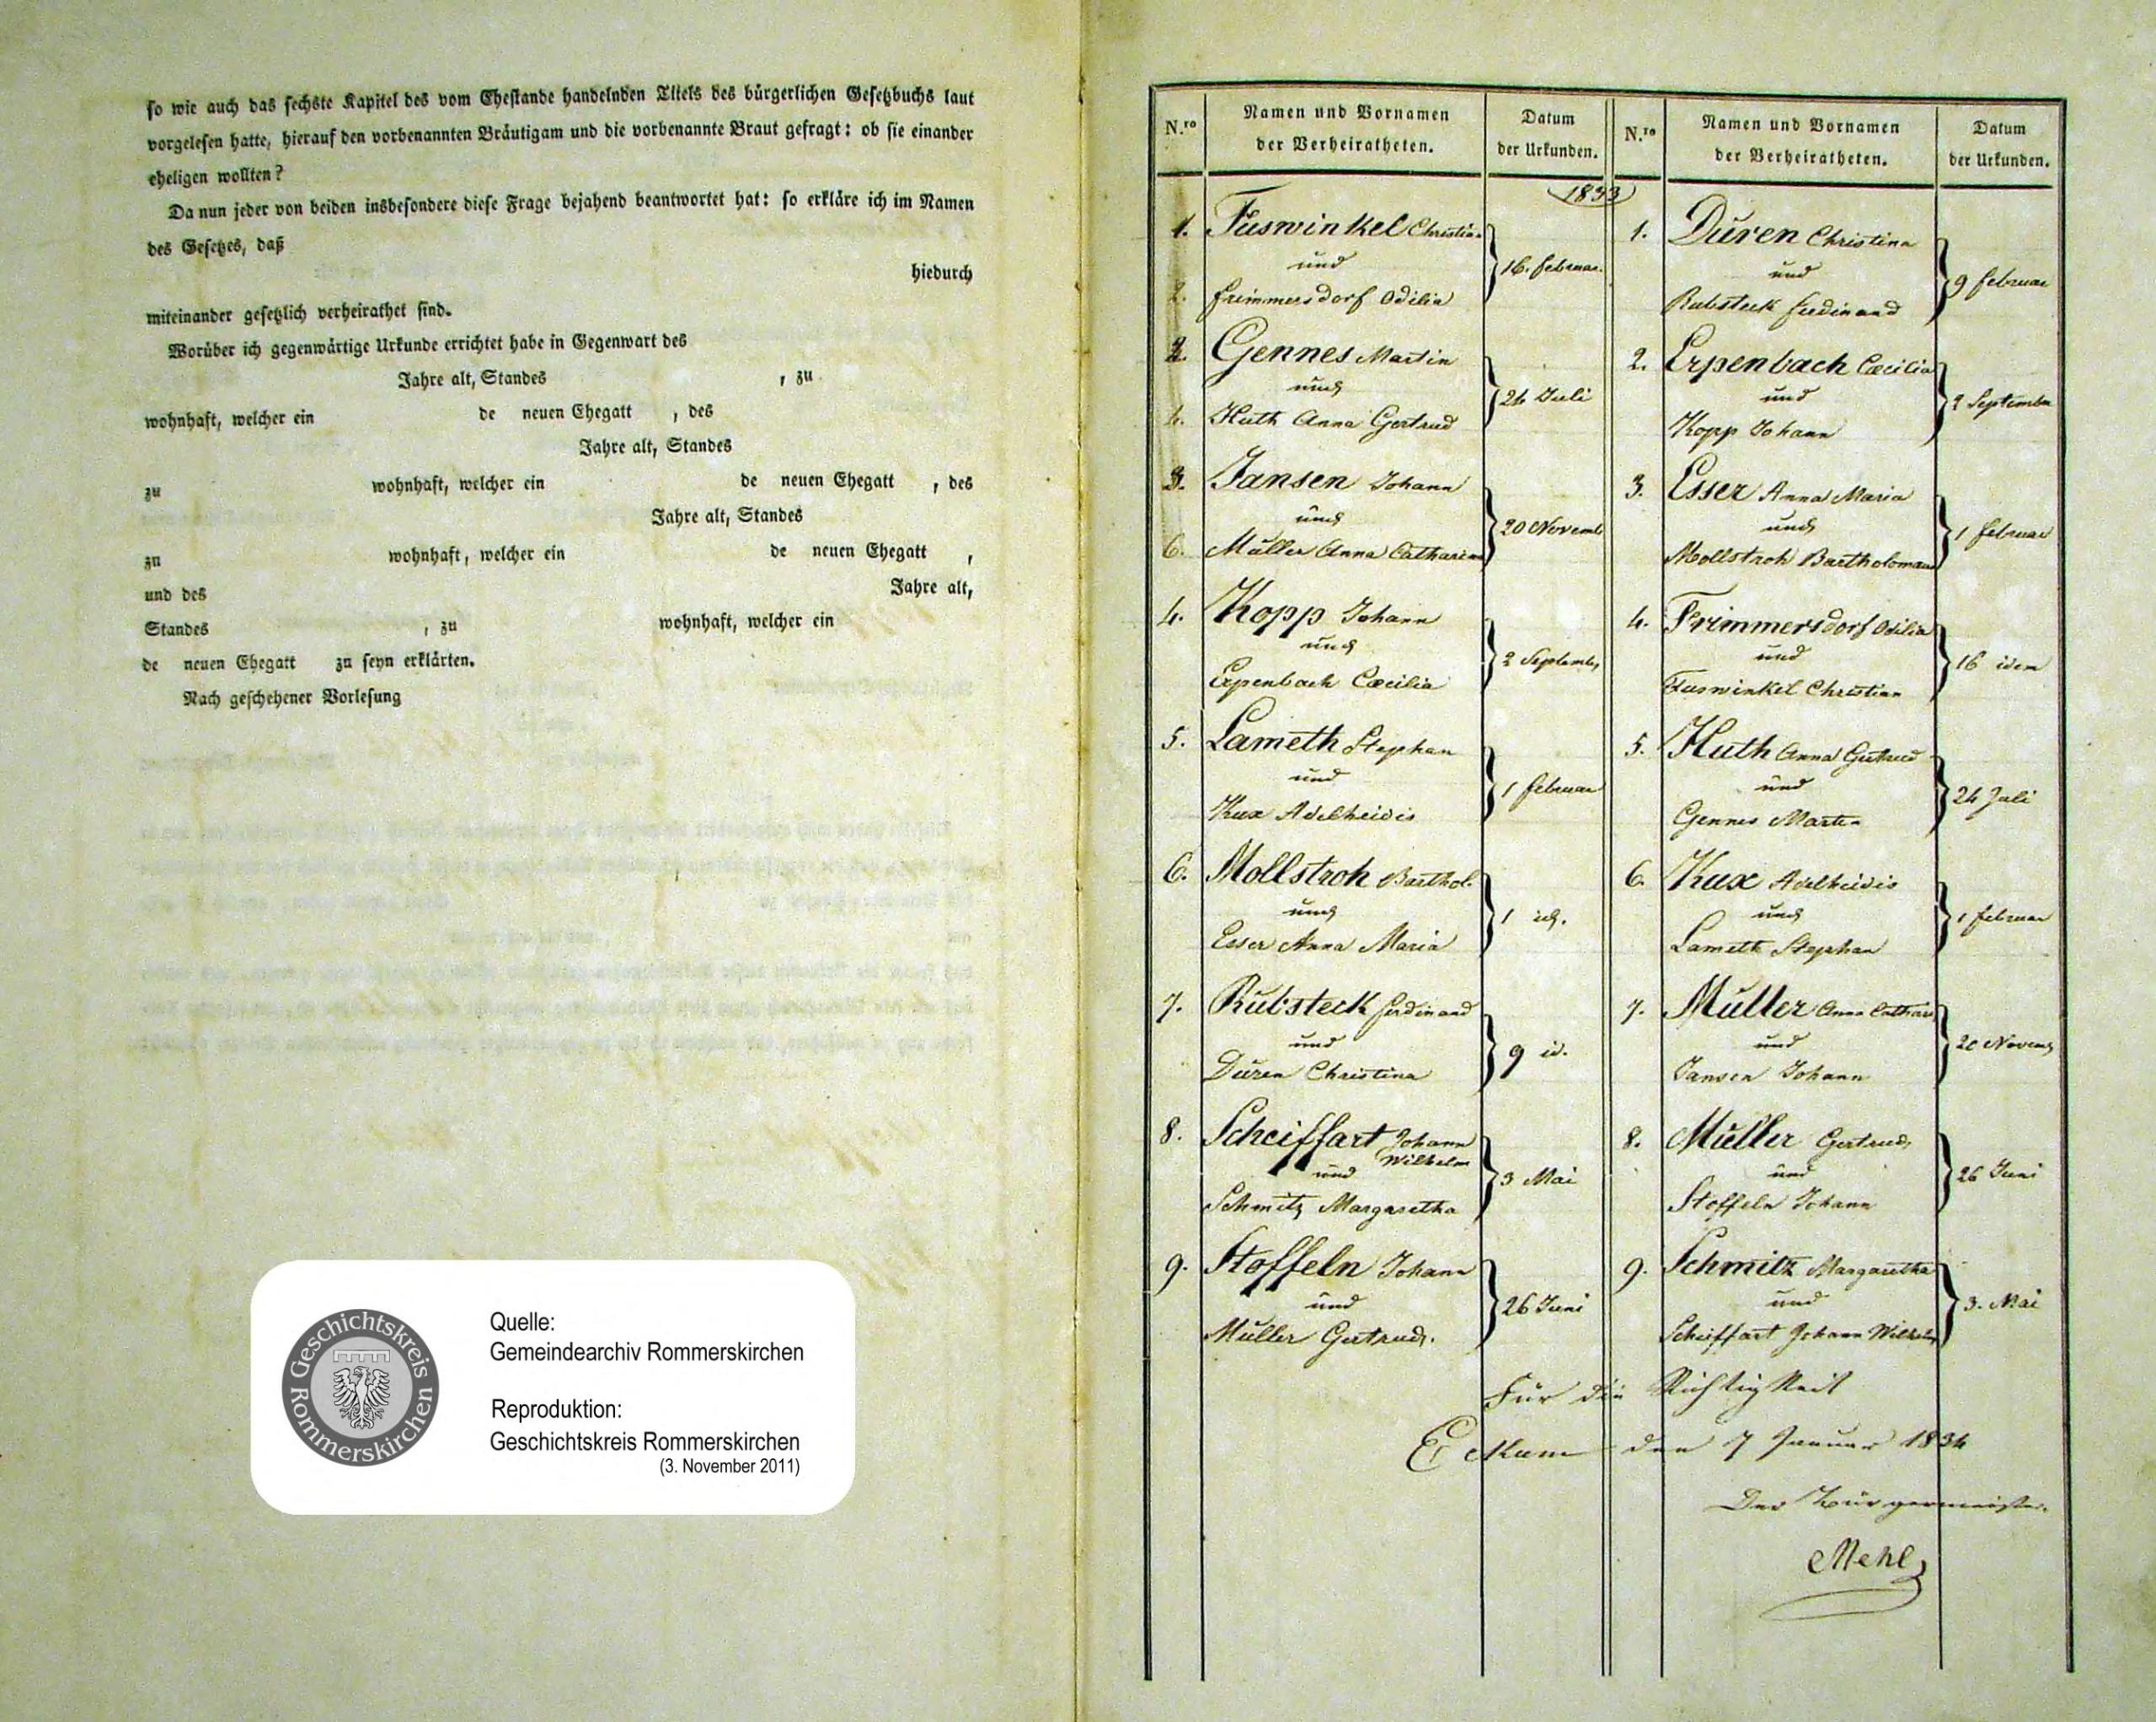 so wie auch das sechste Kapitel des vom Ehestande handelnden Titels des bürgerlichen Gesetzbuchs laut
vorgelesen hatte, hierauf den vorbenannten Bräutigam und die vorbenannte Braut gefragt: ob sie einander
eheligen wollten?
Da nun jeder von beiden insbesondere diese Frage bejahend beantwortet hat: so erkläre ich im Namen
des Gesetzes, daß
hiedurch
miteinander gesetzlich verheirathet sind.
Worüber ich gegenwärtige Urkunde errichtet habe in Gegenwart des
Jahre alt, Standes , zu
wohnhaft, welcher ein de neuen Ehegatt , des
Jahre alt, Standes
zu wohnhaft, welcher ein de neuen Ehegatt , des
Jahre alt, Standes
zu wohnhaft, welcher ein de neuen Ehegatt ,
und des Jahre alt,
Standes , zu wohnhaft, welcher ein
de neuen Ehegatt zu seyn erklärten.
Nach geschehener Vorlesung
Quelle:
Gemeindearchiv Rommerskirchen
Reproduktion:
Geschichtskreis Rommerskirchen
(3. November 2011)
Geschichtskreis Rommerskirchen
N.ro
Namen und Vornamen
der Verheiratheten.
Datum
der Urkunden.
1833
1. Fuswinkel Christian
und
2. Frimmersdorf Odilia
16. Februar.
2. Gennes Martin
und
4. Huth Anna Gertrud
24 Juli
3. Jansen Johann
und
6. Müller Anna Catharina
20 Novemb
4. Kopp Johann
und
Erpenbach Cæcilia
2 Septemb
5. Lameth Stephan
und
Kux Adelheidis
1 Februar
6. Mollstroh Barthol.
und
Esser Anna Maria
1 id.
7. Rubsteck Ferdinand
und
Düren Christina
9 id.
8. Scheiffart Johann
Wilhelm
und
Schmitz Margaretha
3 Mai
9. Stoffeln Johann
und
Müller Gertrud.
26 Juni
N.ro
Namen und Vornamen
der Verheiratheten.
Datum
der Urkunden.
1. Düren Christina
und
Rubsteck Ferdinand
9 Februar
2. Erpenbach Cæcilia
und
Kopp Johann
2 September
3. Esser Anna Maria
und
Mollstroh Bartholomaus
1 Februar
4. Frimmersdorf Odilia
und
Fuswinkel Christian
16 idem
5. Huth Anna Gertrud
und
Gennes Martin
24 Juli
6. Kux Adelheidis
und
Lameth Stephan
1 Februar
7. Müller Anna Cathar
und
Jansen Johann
20 Novemb
8. Müller Gertrud
und
Stoffeln Johann
26 Juni
9. Schmitz Margaretha
und
Scheiffart Johann Wilhelm
3. Mai
Für die Richtigkeit
Eckum den 7 Januar 1834
Der Bürgermeister.
Mehl